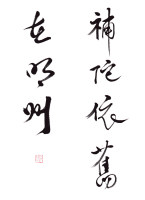 補陀依舊
在明州